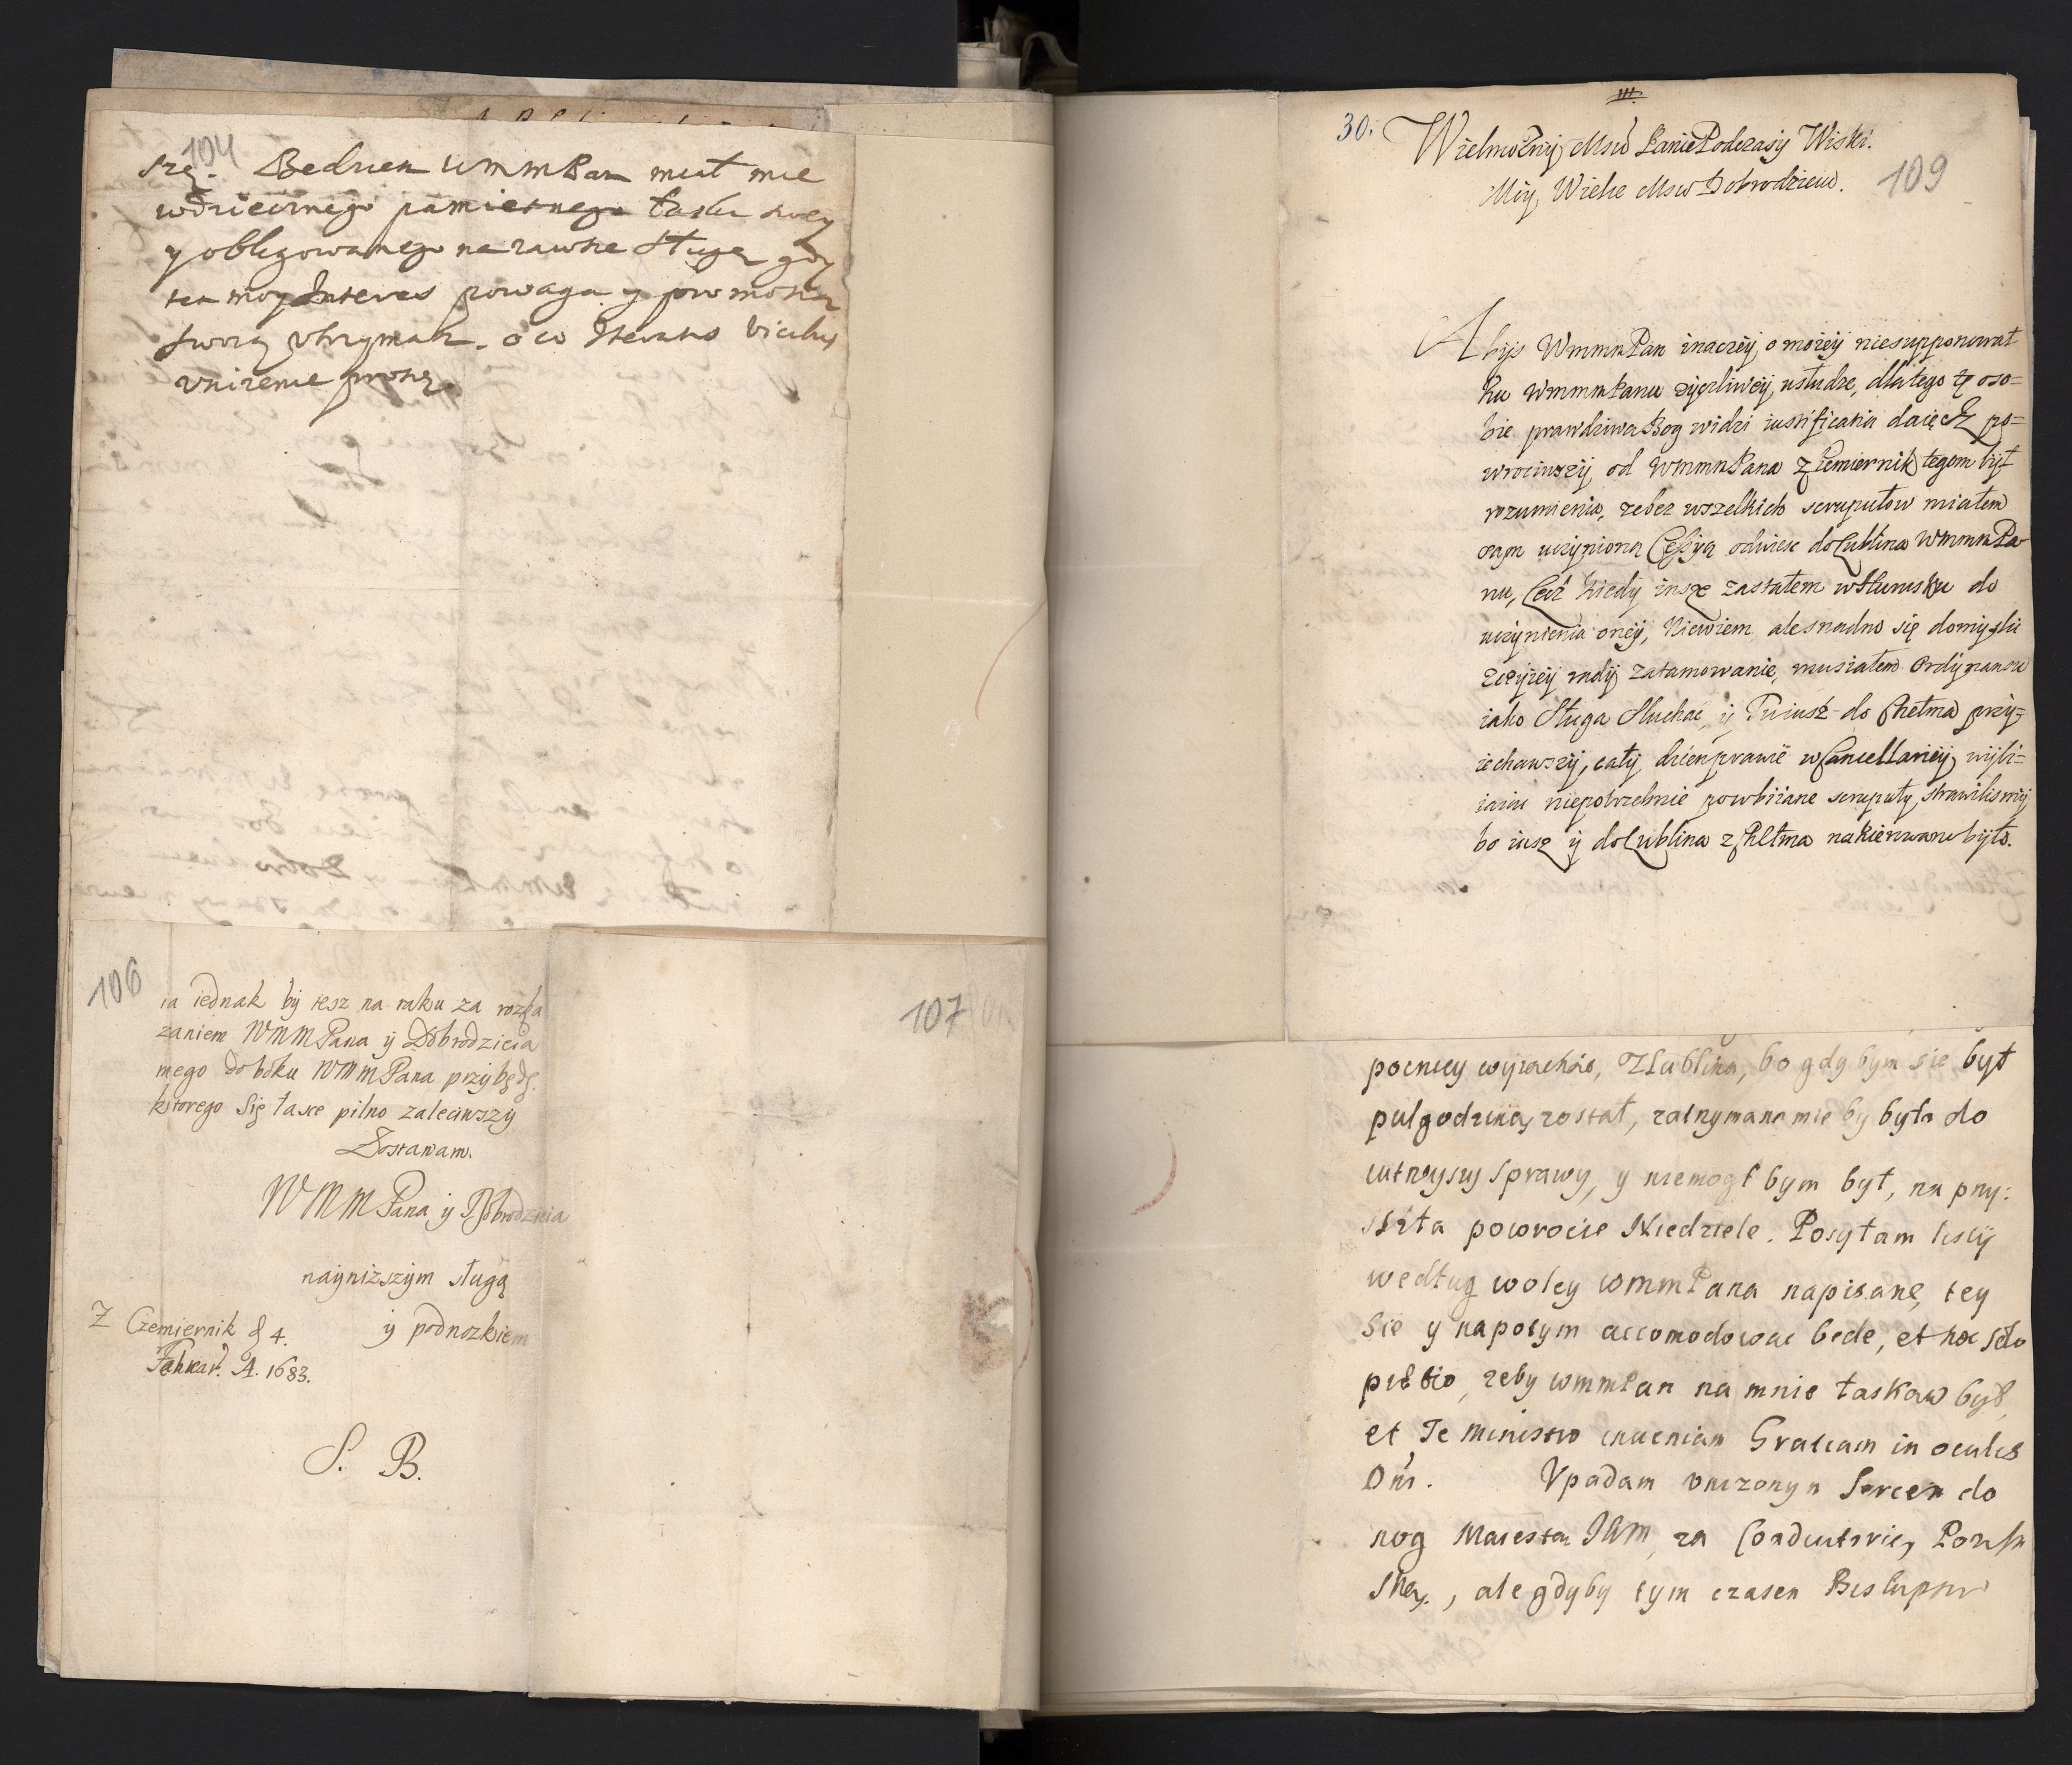 104
szę. Bedziesz WMMPan miał mie
wdziecznego pamietnego łaski swey
y obligowanego na zawsze sługę gdy
ten moy Interes powagą y promotią
swoią vtrzymasz. o co Iteratis vicibus
vnizenie proszę.
106
ia iednak bÿ tesz na raku za rozka
zaniem WMMPana ÿ Dobrodzieia
mego do boku WMMPana przÿbędę.
ktorego Się łasce pilno zaleciwszÿ
Zostawam.
WMMPana ÿ Dobrodzieia
naÿniższÿm sługą
ÿ podnozkiem
Z Czemiernik d 4.
Januar. A. 1683.
S. B.
107
III.
30.
Wielmożnÿ Msci Panie Podczaszÿ Wiski.
Mÿ Wielce Msciw Dobrodzieiu.
109
Abÿs WmmmPan inaczeÿ o moieÿ niesupponował
ku WmmmPanu zÿczliweÿ usłudze, dlatego tę oso=
bie prawdziwa Bog widzi iustificatia daię Iz po=
wrociwszÿ od WmmmPana z Czemiernik tegom bÿł
rozumienia, ze bez wszelkich scrupułow miałem
oraz uczÿniona Cessÿą odwiesc do Lublina WmmmPa
nu, Lecz kiedÿ insze zastałem w Słumsku do
uczÿnienia oneÿ, Niewiem ale snadno się domÿslic
zczÿieÿ radÿ zatamowanie, musiałem Ordÿnansu
iako Sługa Słuchac, ÿ Tu iusz do Chełma przÿ=
iechawszÿ, całÿ dzien prawie w Cancellarieÿ wÿbi=
iaiac niepotrzebnie powbiiane scrupułÿ, strawilismÿ
bo iusz ÿ do Lublina z Chełma nakierowano bÿło.
pocnicy wyiachać, z Lublina, bo gdy bym sie był
pulgodziną został, zatrzymano mie by było do
iutrzyszy sprawy, y niemogł bym był, na przy:
szłą powrocie Niedziele. Posyłam listÿ
według woley WMMPana napisane, tey
Sie y na potym accomodowac bede, et hoc solo
petito, zeby WMMPan na mnie łaskaw był,
et Te ministro inueniam Gratiam in oculis
Dni. Vpadam vnizonym sercem do
nog Maiestatu JKM, za Coadiutorię Poznn
ską, ale gdyby tym czasem Biskupstw